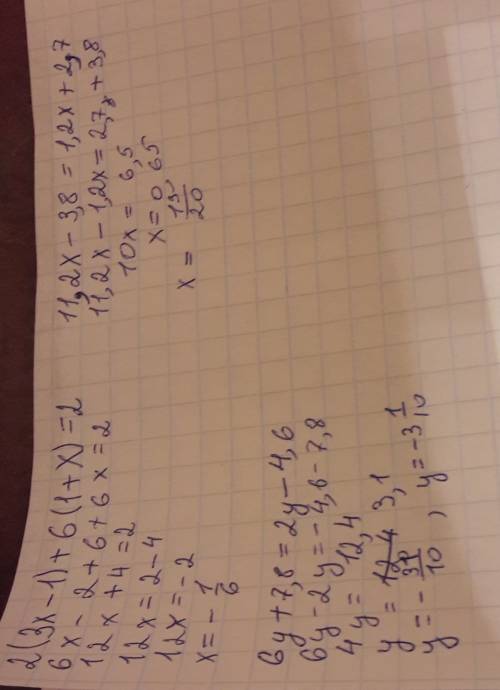 2(3x-1)+6(1+x)=2
6x-2+6+6x=2
12x+4=2
12x=2-4
12x=-2
x=-1/6
11,2x-3,8=1,2x+2,7
11,2x-1,2x=2,7+3,8
10x=6,5
x=0,65
x=13/20
6y+7,8=2y-4,6
6y-2y=-4,6-7,8
4y=12,4
y=3,1
y=-31/10, y=-3 1/10